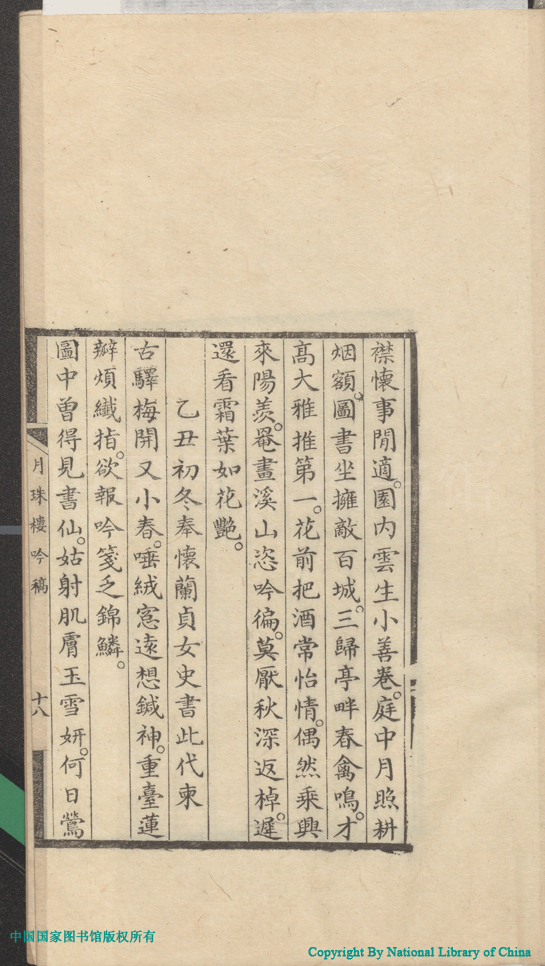 襟懷事閒適。園内雲生小善卷。庭中月照耕
烟額。圖書坐擁敵百城。三歸亭畔春禽鳴。才
高大雅推第一。花前把酒常怡情。偶然乘興
來陽羨。罨畫溪山恣吟徧。莫厭秋深返棹遲。
還看霜葉如花艷。
乙丑初冬奉懷蘭貞女史書此代柬
古驛梅開又小春。唾絨窓遠想鍼神。重臺蓮
瓣煩纖指。欲報吟箋乏錦鱗。
圖中曾得見書仙。姑射肌膚玉雪妍。何日鶯
月珠樓吟稿
十八
中国国家图书馆版权所有
Copyright By National Library of China